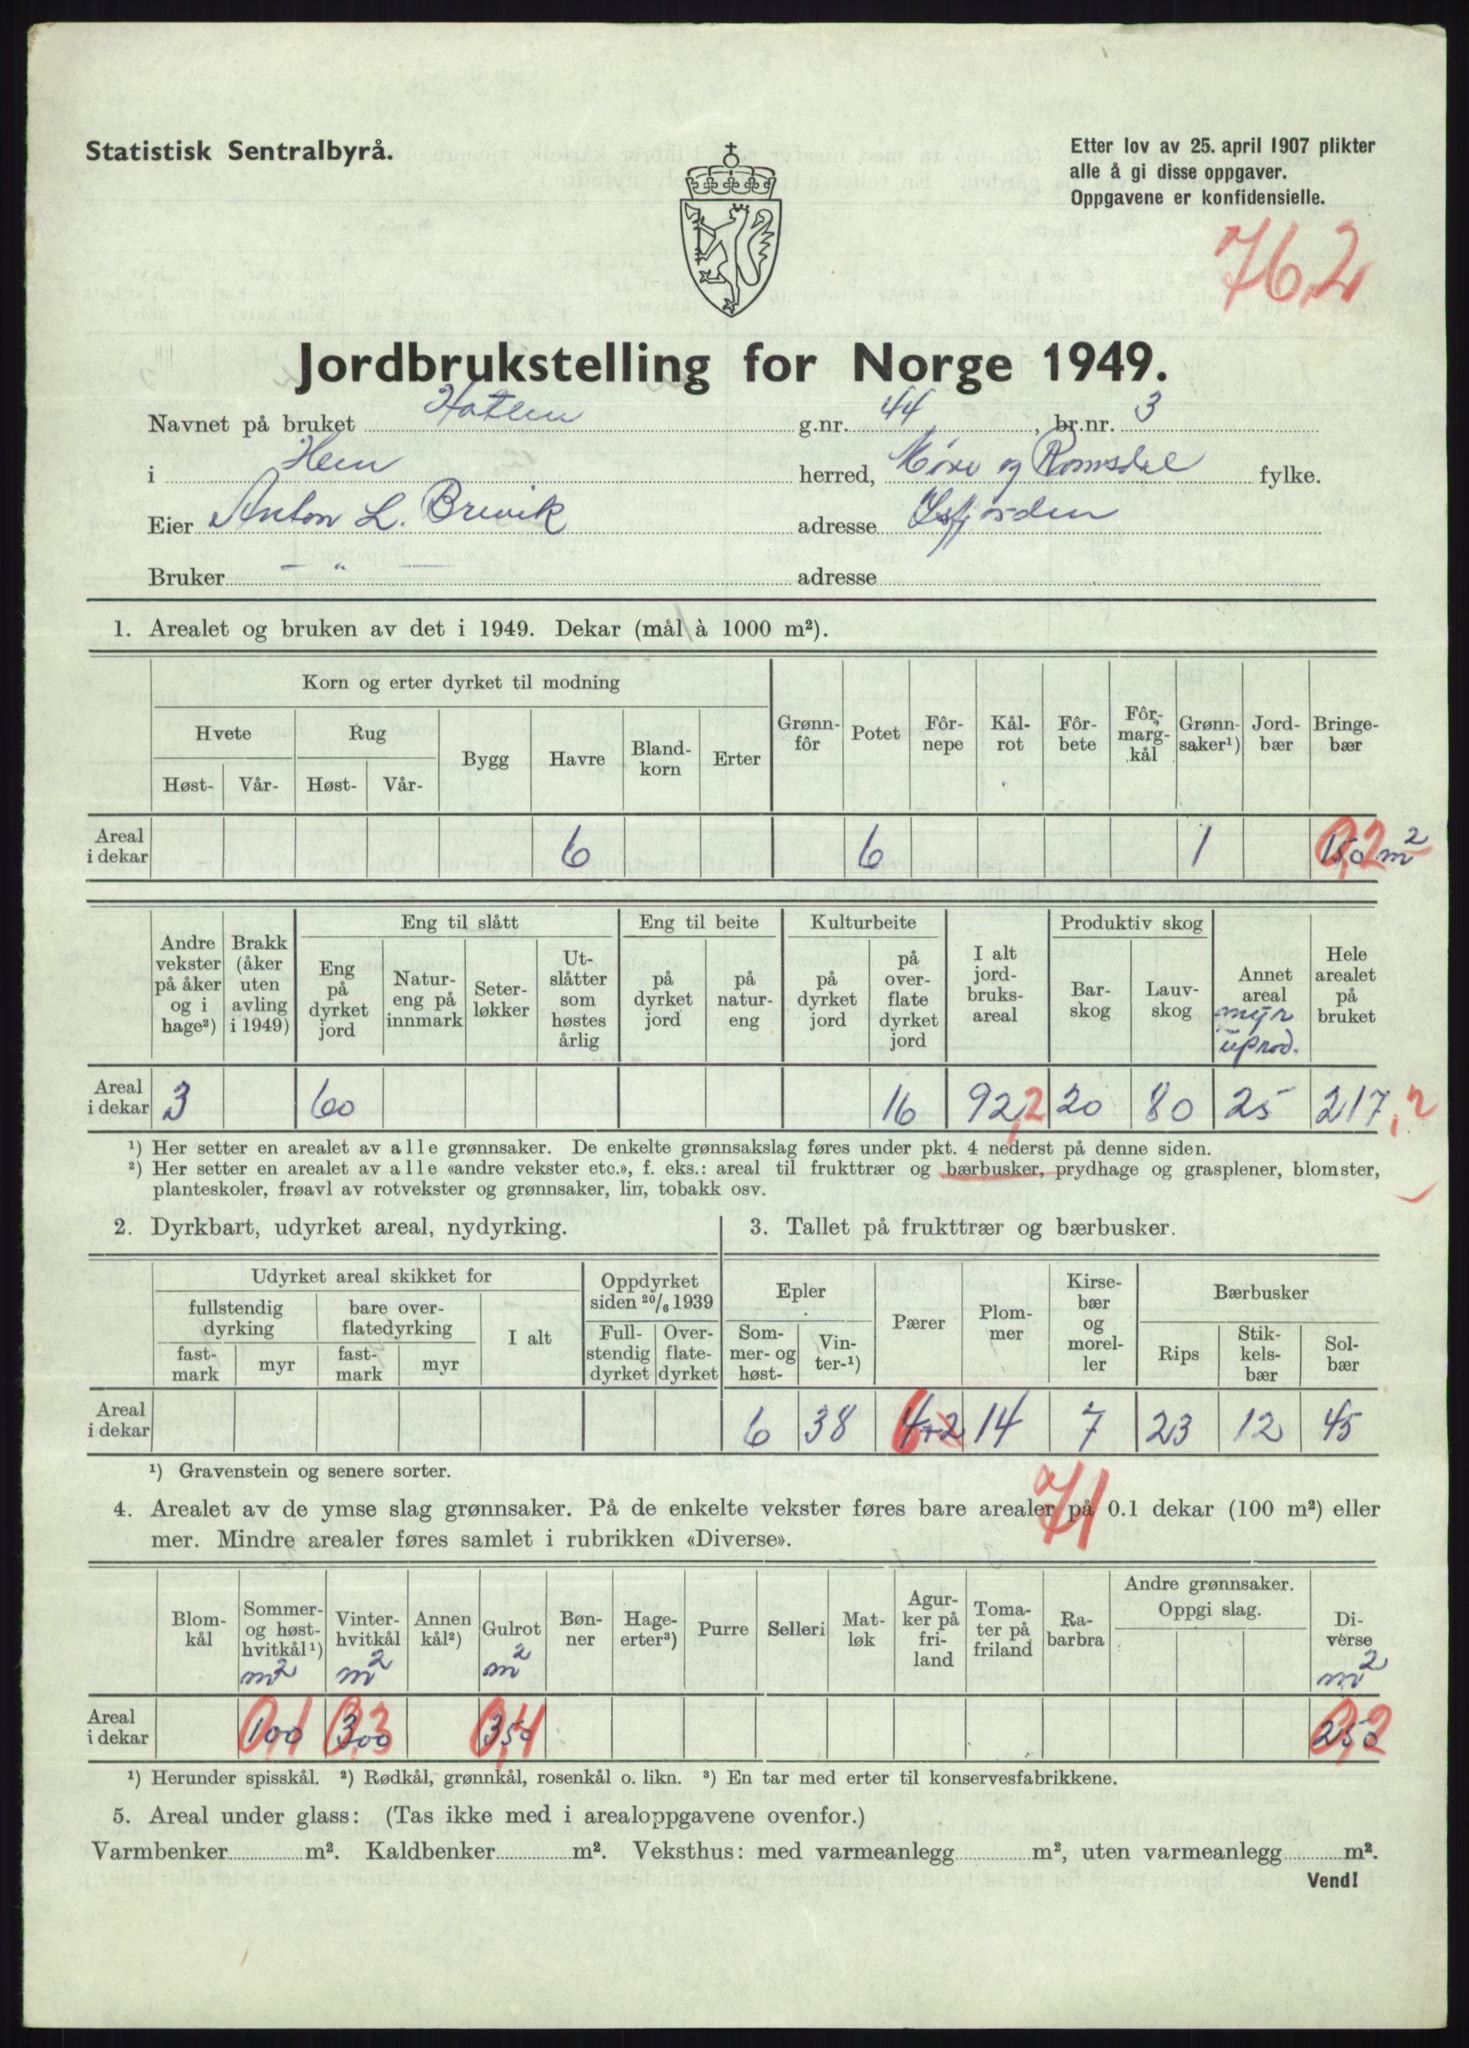 Statistisk Sentralbyrå.
Etter lov av 25. april 1907 plikter
alle å gi disse oppgaver.
Oppgavene er konfidensielle.
76,2
Jordbrukstelling for Norge 1949.
Navnet på bruket Hatlen g.nr. 44, br.nr. 3
i Hen herred, Møre og Romsdal fylke.
Eier Anton L. Brevik adresse Isfjorden
Bruker — " — adresse
1. Arealet og bruken av det i 1949. Dekar (mål à 1000 m²).
Korn og erter dyrket til modning
Hvete Rug Bygg Havre Bland-korn Erter Grønn-fôr Potet Fôr-nepe Kål-rot Fôr-bete Fôr-marg-kål Grønn-saker¹) Jord-bær Bringe-bær
Høst- Vår- Høst- Vår-
Areal i dekar 6 6 1 150 m² 0,2
Andre vekster på åker og i hage²) Brakk (åker uten avling i 1949) Eng til slått Eng til beite Kulturbeite I alt jord-bruks-areal Produktiv skog Annet areal myr uprod. Hele arealet på bruket
Eng på dyrket jord Natur-eng på innmark Seter-løkker Ut-slåtter som høstes årlig på dyrket jord på natur-eng på dyrket jord på over-flate dyrket jord Bar-skog Lauv-skog
Areal i dekar 3 60 16 92,2 20 80 25 217,2
¹) Her setter en arealet av alle grønnsaker. De enkelte grønnsakslag føres under pkt. 4 nederst på denne siden.
²) Her setter en arealet av alle «andre vekster etc.», f. eks.: areal til frukttrær og bærbusker, prydhage og grasplener, blomster,
planteskoler, frøavl av rotvekster og grønnsaker, lin, tobakk osv.
2. Dyrkbart, udyrket areal, nydyrking.
Udyrket areal skikket for Oppdyrket siden 20/6 1939
fullstendig dyrking bare over-flatedyrking I alt Full-stendig dyrket Over-flate-dyrket
fast-mark myr fast-mark myr
3. Tallet på frukttrær og bærbusker.
Epler Pærer Plom-mer Kirse-bær og morel-ler Bærbusker
Som-mer- og høst- Vin-ter-¹) Rips Stik-kels-bær Sol-bær
Areal i dekar 6 38 4+2 6 14 7 23 12 45
¹) Gravenstein og senere sorter.
71
4. Arealet av de ymse slag grønnsaker. På de enkelte vekster føres bare arealer på 0.1 dekar (100 m²) eller
mer. Mindre arealer føres samlet i rubrikken «Diverse».
Blom-kål Sommer- og høst-hvitkål¹) m² Vinter-hvitkål m² Annen kål²) Gulrot m² Bøn-ner Hage-erter³) Purre Selleri Mat-løk Agur-ker på fri-land Toma-ter på friland Ra-barbra Andre grønnsaker. Oppgi slag. Di-verse m²
Areal i dekar 100 0,1 300 0,3 350 0,4 250 0,2
¹) Herunder spisskål. ²) Rødkål, grønnkål, rosenkål o. likn. ³) En tar med erter til konservesfabrikkene.
5. Areal under glass: (Tas ikke med i arealoppgavene ovenfor.)
Varmbenker m². Kaldbenker m². Veksthus: med varmeanlegg m², uten varmeanlegg m².
Vend!